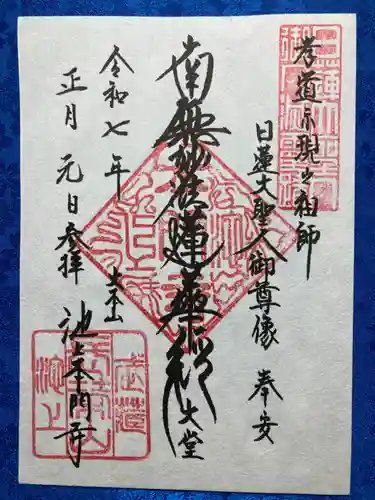 孝道示現之祖師
日蓮大聖人御尊像 奉安
南無妙法蓮華経
大堂
大本山
池上本門寺
令和七年
正月元日参拝